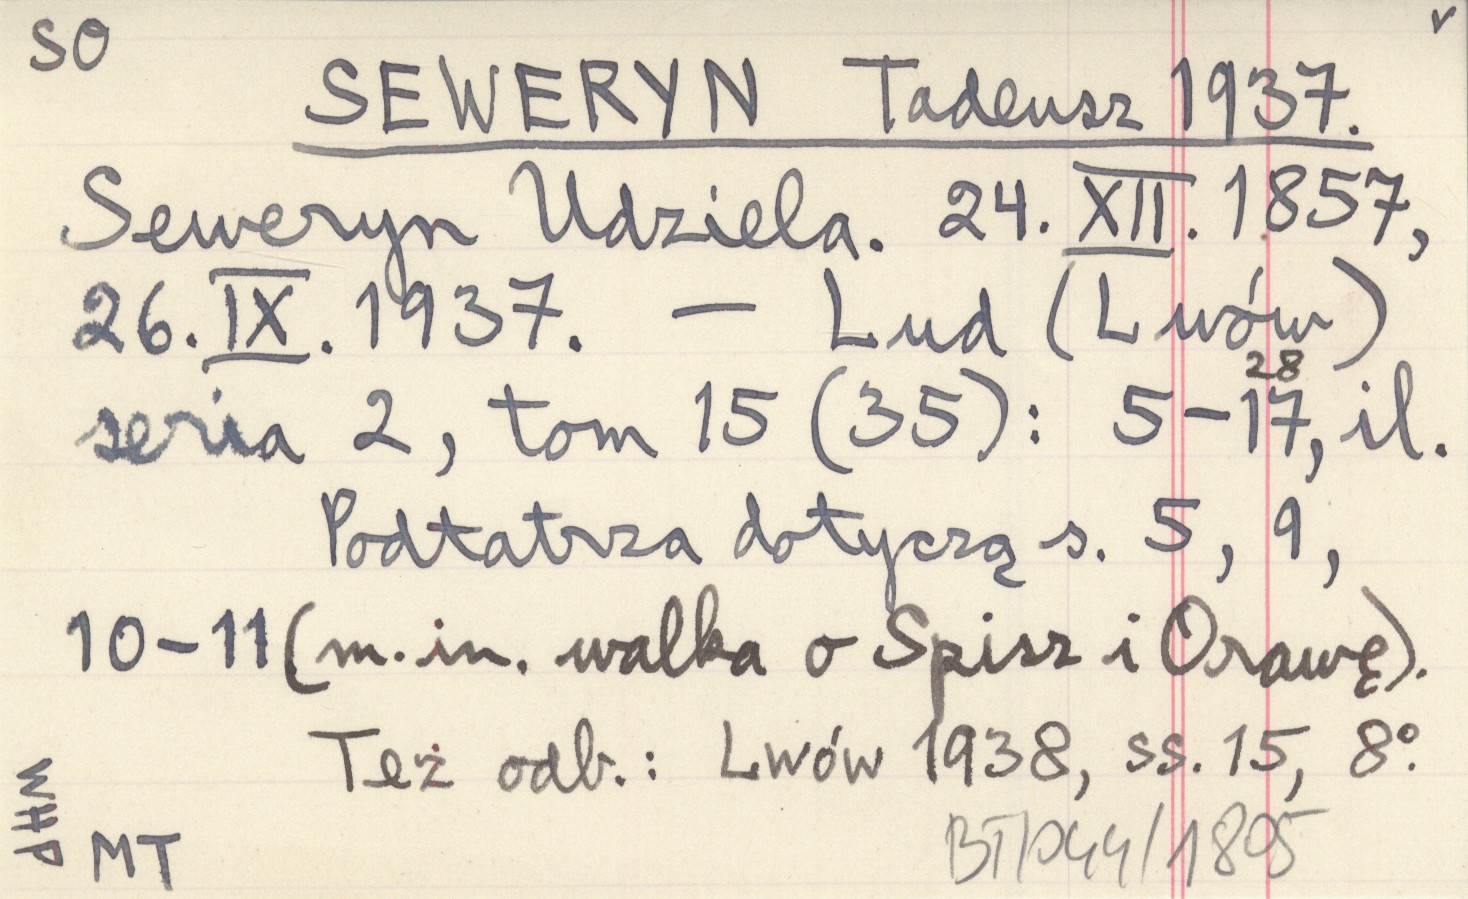 SO
v
SEWERYN Tadeusz 1937.
Seweryn Udziela. 24. XII. 1857,
26. IX. 1937. — Lud (Lwów)
28
seria 2, tom 15 (35): 5-17, il.
Podtatrza dotyczą s. 5, 9,
10-11 (m.in. walka o Spisz i Orawę).
Też odb.: Lwów 1938, ss. 15, 8°.
WHP
MT